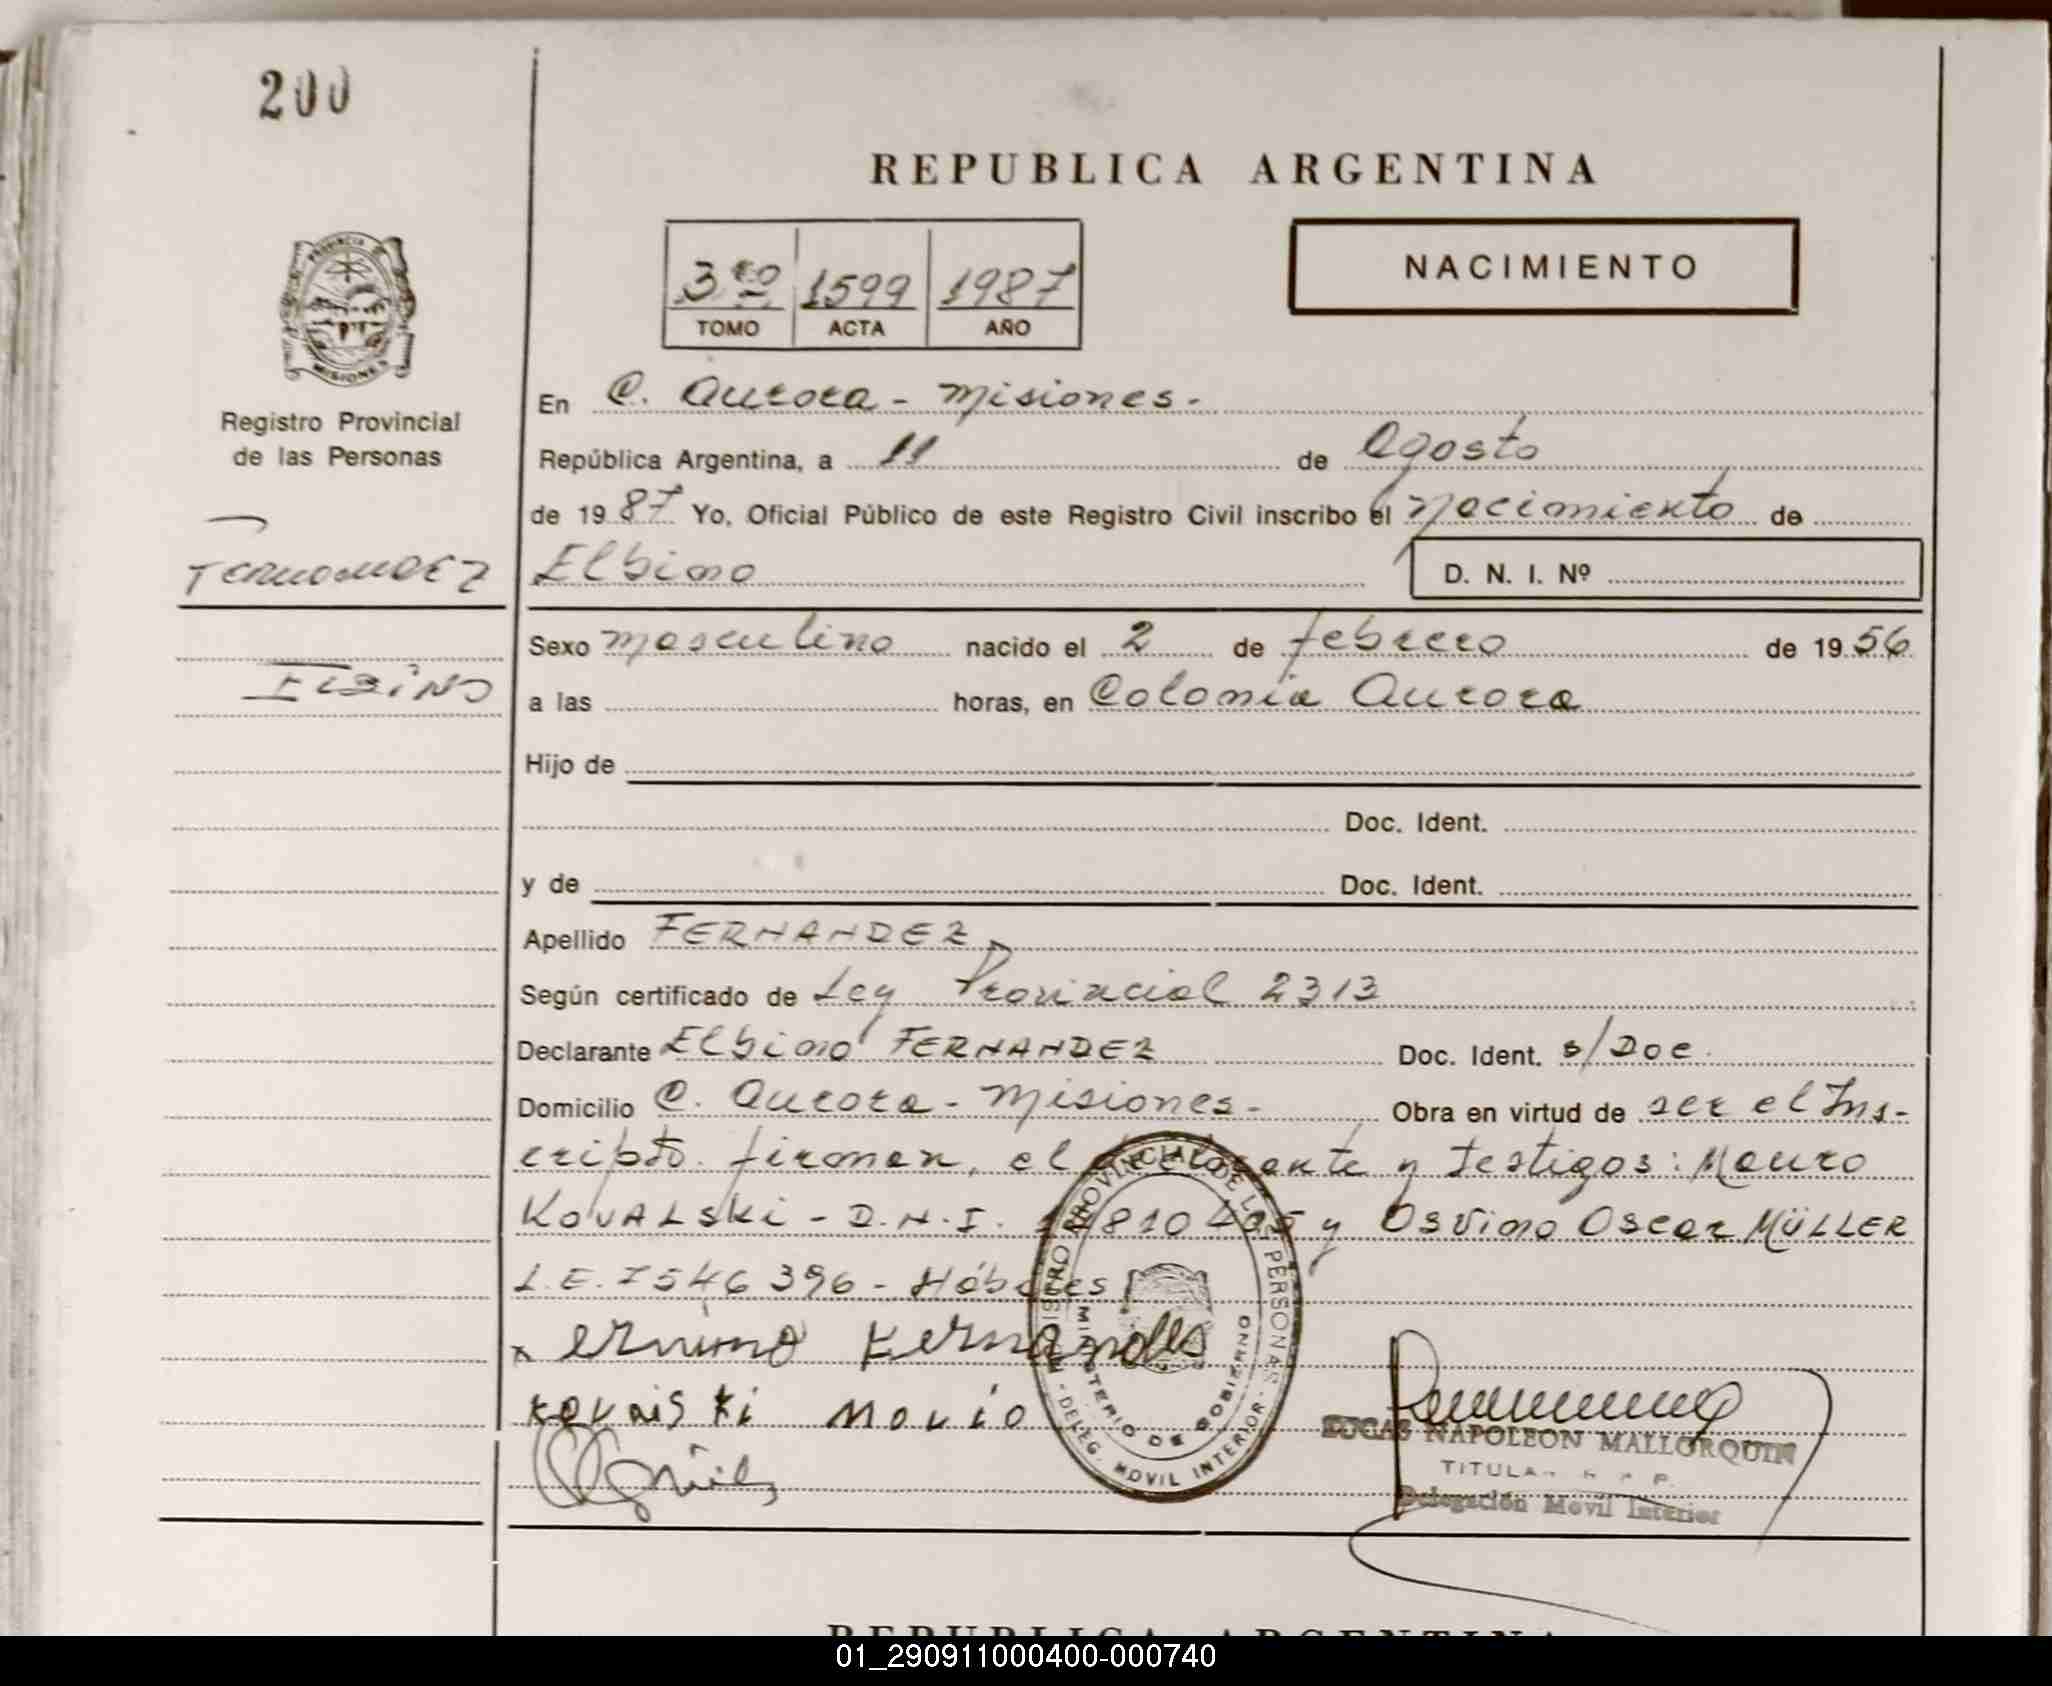 200
REPUBLICA ARGENTINA
3ro 1599 1987
TOMO ACTA AÑO
NACIMIENTO
PROVINCIA DE MISIONES
Registro Provincial
de las Personas
En C. Aurora - Misiones.-
República Argentina, a 11 de Agosto
de 1987 Yo, Oficial Público de este Registro Civil inscribo el Nacimiento de
Fernandez
Elbino
D. N. I. Nº
Sexo Masculino nacido el 2 de febrero de 1956
Elbino
a las horas, en Colonia Aurora
Hijo de
Doc. Ident.
y de Doc. Ident.
Apellido FERNANDEZ
Según certificado de Ley Provincial 2313
Declarante Elbino FERNANDEZ Doc. Ident. s/Doc.
Domicilio C. Aurora - Misiones - Obra en virtud de ser el Ins-
cripto. firman, el declarante y testigos: Mauro
KOVALSKi - D.N.I. y Osvino Oscar MÜLLER
L.E. 7546396 - Hábiles
x Fernandes
REGISTRO PROVINCIAL DE LAS PERSONAS - DELEG. MOVIL INTERIOR -
MINISTERIO DE GOBIERNO
LUCAS NAPOLEON MALLORQUIN
TITULAR
Delegación Movil Interior
REPUBLICA ARGENTINA
01_290911000400-000740